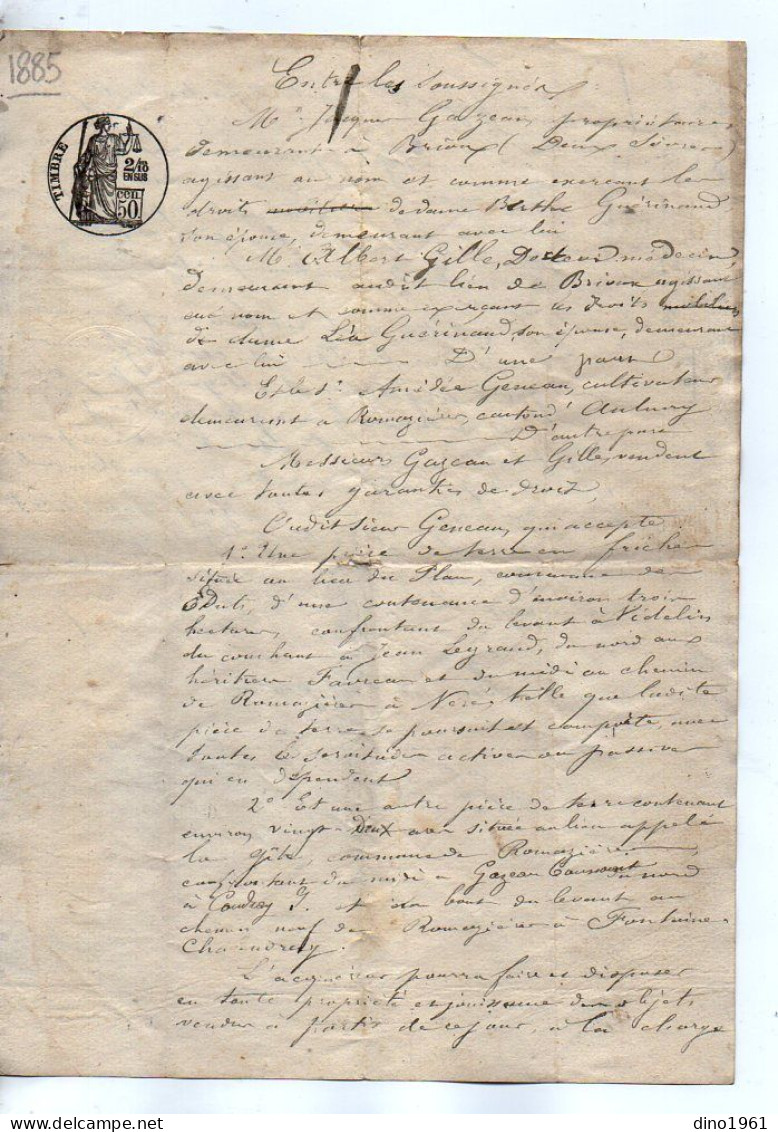 1885
TIMBRE
2/10
EN SUS
50
CEN
Entre les soussignés
Mr Jacques Gazeau, propriétaire,
demeurant à Brioux (Deux Sèvres)
agissant au nom et comme exerçant les
droits mobiliers de dame Berthe Guérinaud
son épouse, demeurant avec lui
Mr Albert Gille, Docteur médecin,
demeurant audit lieu de Brioux agissant
au nom et comme exerçant les droits mobiliers
de dame Léa Guérinaud, son épouse, demeurant
avec lui D'une part
Et le Sr Amédée Geneau, cultivateur
demeurant à Romazières, canton d'Aulnay
D'autre part
Messieurs Gazeau et Gille, vendent
avec toutes garanties de droit,
Audit sieur Geneau, qui accepte
1o Une pièce de terre en friche
située au lieu du Plan, commune de
d'une contenance d'environ trois
hectares, confrontant du levant à Videlin
du couchant à Jean Legrand, du nord aux
héritiers Favreau et du midi au chemin
de Romazières à Néré, telle que ladite
pièce de terre se poursuit et comporte, avec
toutes les servitudes actives ou passives
qui en dépendent
2o Et une autre pièce de terre contenant
environ vingt-deux ares située au lieu appelé
la Gîte, commune de Romazières,
confrontant du midi à Gazeau du nord
à Coudray J. et d'un bout du levant au
chemin neuf de Romazières à Fontaine-
Chalendray.
L'acquéreur pourra faire et disposer
en toute propriété et jouissance des objets
vendus à partir de ce jour, à la charge
dino1961